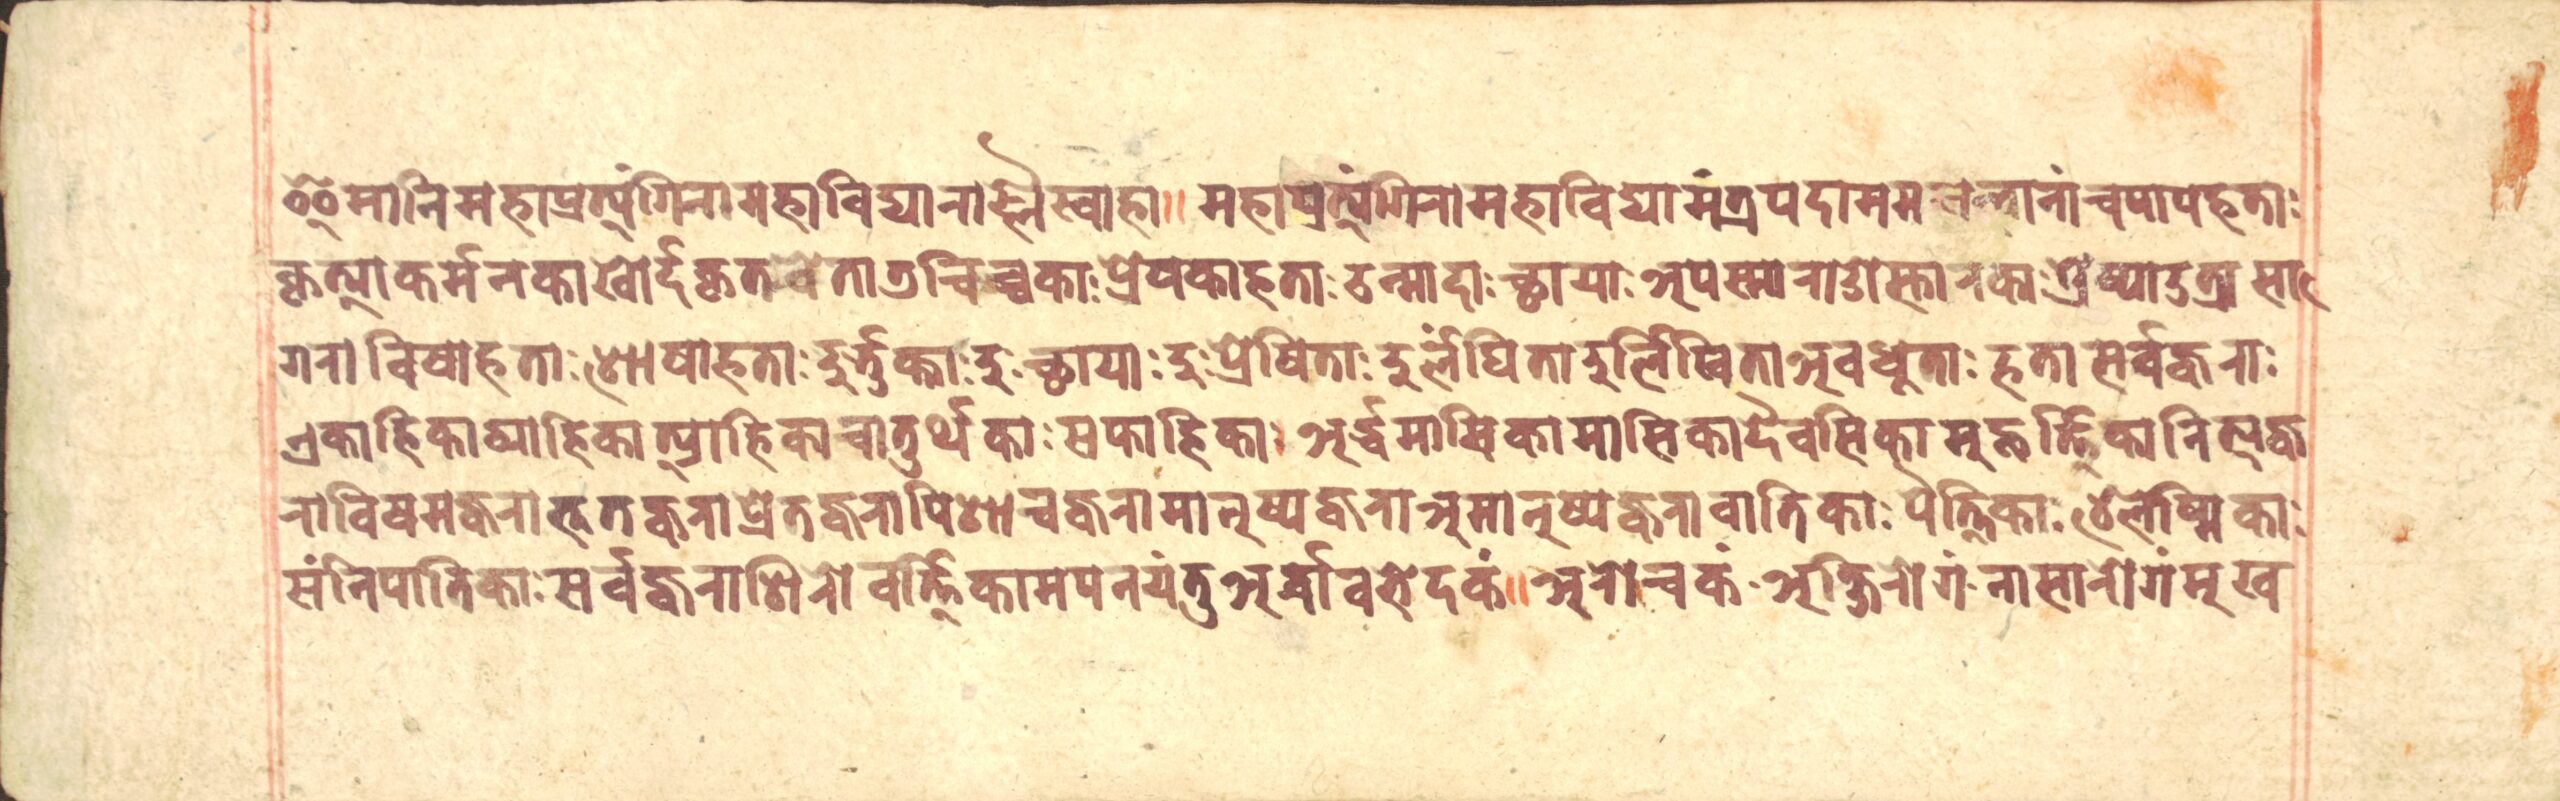 ॐमानिमहाप्रत्यंगिरामहाविद्याराज्ञैस्वाहा॥ महाप्रत्यंगिरामहाविद्यामंत्रपदाममसत्वानांचपापहताः
कृत्याकर्मनकाखोर्दकृत चिच्चकाः प्रेषकाहताः उन्मादाः च्छायाः अपस्माराओस्तारकाः
गराविषाहताः शोषाहताः दुर्भुक्ताः दुःच्छायाः दुःप्रेषिताः दुर्लंघितादुर्लिखिताअवधूताः हतासर्वज्वराः
एकाहिकाद्व्याहिकात्र्याहिकाचातुर्थकाः सप्ताहिकाः अर्द्धमासिकामासिकादैवसिकामुहूर्त्तिकानित्यज्व
राविषमज्वराभूतज्वराप्रेतज्वरापिशाचज्वरामानुष्यज्वराअमानुष्यज्वरावातिकाः पैत्तिकाः श्लेष्मिकाः
संनिपातिकाः सर्वज्वराशिरोवर्त्तिकामपनयंतुअर्द्धावभेदकं॥ अरोचकं अक्षिरोगं नासारोगंमुख